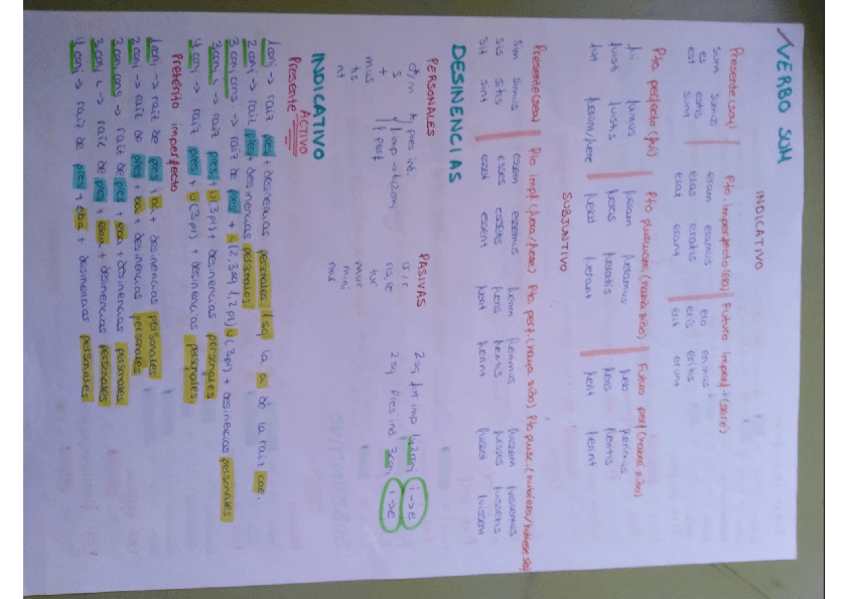 VERBO SUM
INDICATIVO
Presente (soy) Pto. imperfecto (era) Futuro imperf. (seré)
sum sumus eram eramus ero erimus
es estis eras eratis eris eritis
est sunt erat erant erit erunt
Pto perfecto (fui) Pto pluscuam. (había sido) Futuro perf (habré sido)
fui fuimus fueram fueramus fuero fuerimus
fuisti fuistis fueras fueratis fueris fueritis
fuit fuerunt/fuere fuerat fuerant fuerit fuerint
SUBJUNTIVO
Presente (sea) Pto impf. (fuera/fuese) Pto perf. (haya sido) Pto plusc. (hubiera/hubiese sido)
sim simus essem essemus fuerim fuerimus fuissem fuissemus
sis sitis esses essetis fueris fueritis fuisses fuissetis
sit sint esset essent fuerit fuerint fuisset fuissent
DESINENCIAS
PERSONALES PASIVAS
o/m pres ind. o/r
s f imp 1ª y 2ª conj ris, re 2 sg fut imp 1ª y 2ª conj i -> e
t f perf tur 2 sg pres ind. 3 conj i -> e
mus mur
tis mini
nt ntur
INDICATIVO
ACTIVO
Presente
1 conj -> raiz pres + desinencias personales 1 sg la a de la raiz cae.
2 conj -> raiz pres + desinencias personales
3 conj cons -> raiz de pres + i (2,3 sg 1,2 pl) u (3 pl) + desinencias personales
3 conj i -> raiz pres + u (3 pl) + desinencias personales
4 conj -> raiz pres + u (3 pl) + desinencias personales
Pretérito imperfecto
1 conj -> raiz de pres + ba + desinencias personales
2 conj -> raiz de pres + ba + desinencias personales
3 conj cons -> raiz de pres + eba + desinencias personales
3 conj i -> raiz de pres + eba + desinencias personales
4 conj -> raiz de pres + eba + desinencias personales